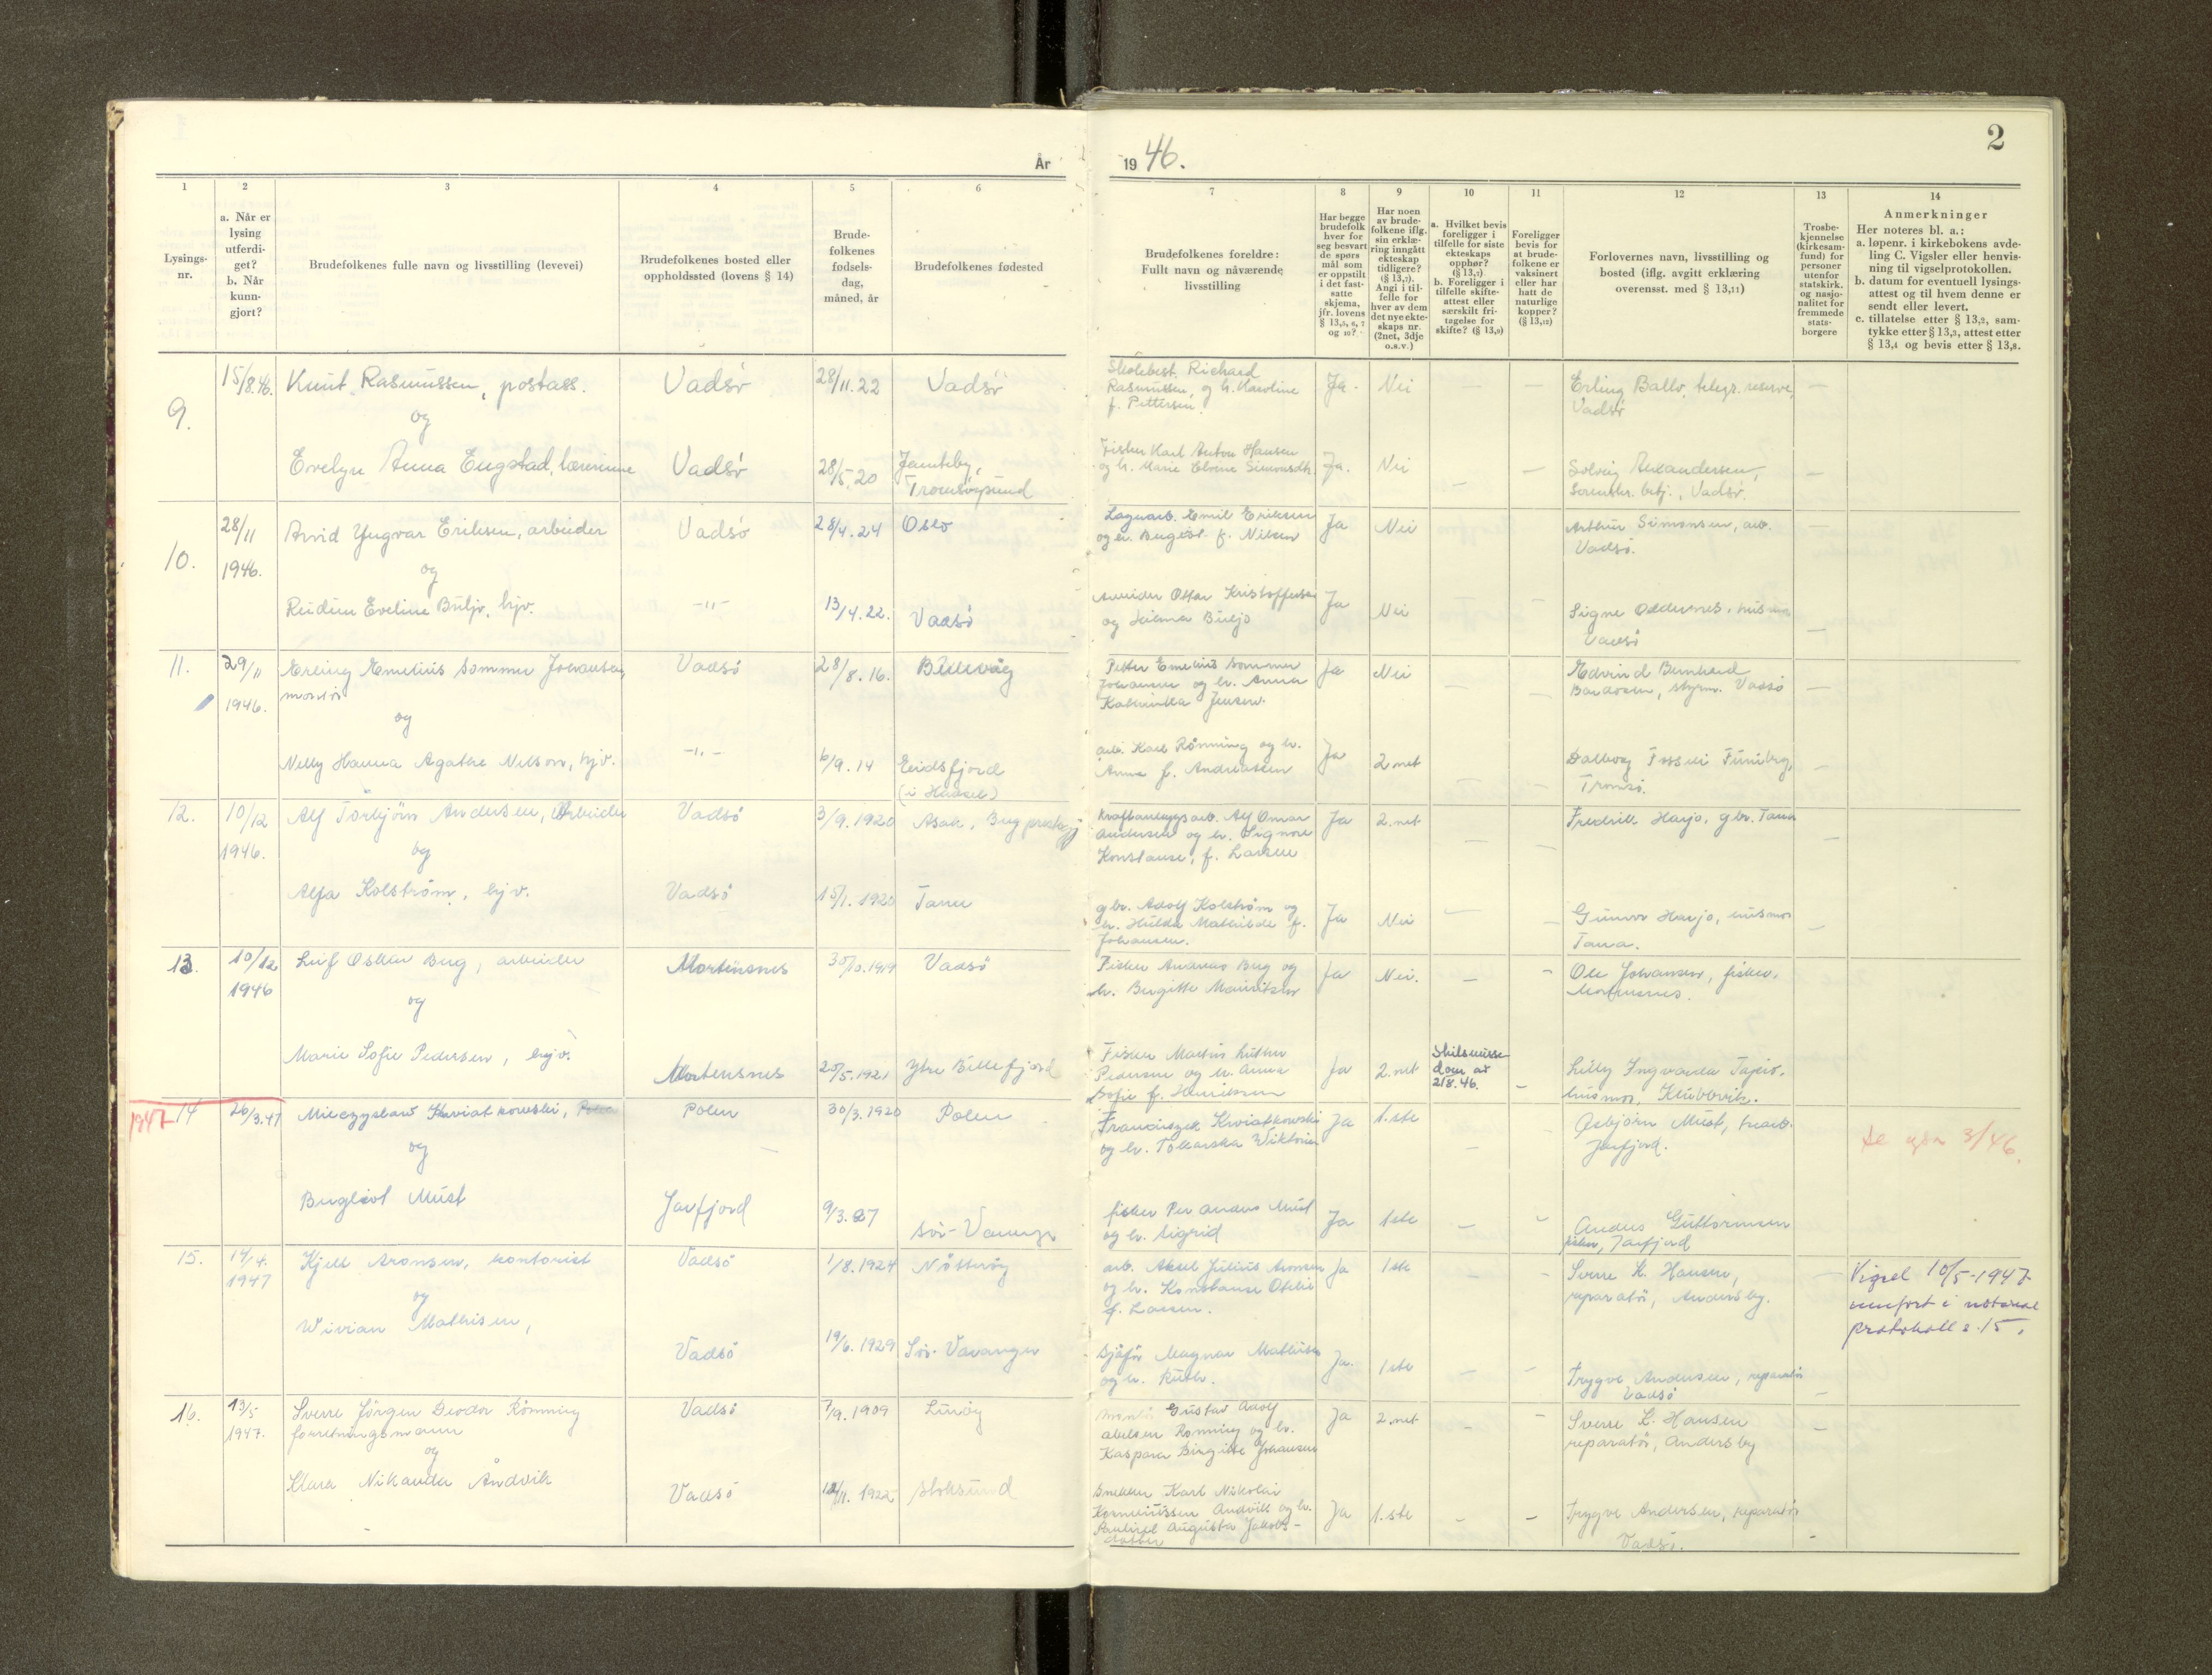 År
1946.
2
1
2
3
4
5
6
7
8
9
10
11
12
13
14
Lysings-
nr.
a. Når er
lysing
utferdi-
get?
b. Når
kunn-
gjort?
Brudefolkenes fulle navn og livsstilling (levevei)
Brudefolkenes bosted eller
oppholdssted (lovens § 14)
Brude-
folkenes
fødsels-
dag,
måned, år
Brudefolkenes fødested
Brudefolkenes foreldre:
Fullt navn og nåværende
livsstilling
Har begge
brudefolk
hver for
seg besvart
de spørs
mål som
er oppstilt
i det fast-
satte
skjema,
jfr. lovens
§ 13,5, 6, 7
og 10?
Har noen
av brude-
folkene iflg.
sin erklæ-
ring inngått
ekteskap
tidligere?
(§ 13,7).
Angi i til-
felle for
hver av dem
det nye ekte-
skaps nr.
(2net, 3dje
o.s.v.)
a. Hvilket bevis
foreligger i
tilfelle for siste
ekteskaps
opphør?
(§ 13,7)
b. Foreligger i
tilfelle skifte-
attest eller
særskilt fri-
tagelse for
skifte? (§ 13,9)
Foreligger
bevis for
at brude-
folkene er
vaksinert
eller har
hatt de
naturlige
kopper?
(§ 13,12)
Forlovernes navn, livsstilling og
bosted (iflg. avgitt erklæring
overensst. med § 13,11)
Trosbe-
kjennelse
(kirkesam-
fund) for
personer
utenfor
statskirk.
og nasjo-
nalitet for
fremmede
stats-
borgere
Anmerkninger
Her noteres bl. a.:
a. løpenr. i kirkebokens avde-
ling C. Vigsler eller henvis-
ning til vigselprotokollen.
b. datum for eventuell lysings-
attest og til hvem denne er
sendt eller levert.
c. tillatelse etter § 13,2, sam-
tykke etter § 13,3, attest etter
§ 13,4 og bevis etter § 13,8.
9.
15/8.46.
Knut Rasmussen, postass.
Vadsø
28/11.22
Vadsø
Skolebest. Richard
Rasmussen, og h. Karoline
f. Pettersen.
Ja.
Nei
—
—
Erling Ballo, telegr. reserve,
Vadsø
—
og
Evelyn Anna Engstad, lærerinne
Vadsø
28/5.20
Tromsøysund
Fisker Karl Anton Hansen
og h. Marie Elvine Simonsdtr.
Ja.
Nei
—
—
Solveig
Vadsø.
—
10.
28/11
1946.
Arvid Yngvar Eriksen, arbeider
Vadsö
28/4.24
Oslo
Emil Eriksen
og h. f. Nilsen
Ja
Nei
Arthur Simonsen, arb.
Vadsö.
og
Reidun Eveline Buljo, hjv.
-"-
13/4.22.
Vadsö
Arbeider Ottar Kristoffersen
og Hilma Buljo
Ja
Nei
—
Signe husmor
Vadsö
—
11.
29/11
1946.
Erling Emelius Sommer Johansen,
og
Vadsö
28/8.16.
Billevåg
Petter Emelius Sommer
Johansen og h. Anna
Jensen.
Ja
Nei
—
—
Edvind Bernhard
styrm. Vadsö
—
Nelly Hanna Agathe Nilsen, hjv.
-"-
6/9.14
Eidsfjord
(i Hadsel)
arb. Karl Rönning og h.
Anna f. Andreassen
Ja
2.net
—
—
Dalborg
Tromsö.
—
12.
10/12
1946.
Alf Torbjörn Andersen, Arbeider
Vadsö
3/9.1920
Asak, Berg
Kraftanleggsarb. Alf Omar
Andersen og h. Signore
Konstanse, f. Larsen
Ja
2.net
—
—
Fredrik Harjo, gbr. Tana
—
og
Alfa Kolström, hjv.
Vadsö
15/1.1920
Tana
gbr. Adolf Kolström og
h. Hulda Mathilde f.
Johansen.
Ja
Nei
—
—
Gunvor Harjo, husmor
Tana.
—
13.
10/12
1946
Leif Oskar Berg, arbeider
Mortensnes
30/10.1919
Vadsö
Fisker Andreas Berg og
h. Bergitte Mauritzen
Ja
Nei.
—
—
Ole Johansen, fisker,
Mortensnes.
og
Marie Sofie Pedersen, hjv.
Mortensnes
20/5.1921
Ytre Billefjord
Fisker Martin Luther
Pedersen og h. Anna
Sofie f. Henriksen
Ja
2.net
Skilsmisse
dom av
2/8.46.
—
Lilly Ingvarda
husmor, Klubbvik.
1947
14
26/3.47
Mieczyslaw Kwiatkowski,
Polen
30/3.1920
Polen
Franciszek Kwiatkowski
og h. Tokarska Wiktoria
Ja
1.ste
—
—
Asbjörn Must,
Jarfjord.
3/46.
og
Bergliot Must
Jarfjord
9/3.27
Sör-Varanger
fisker Per Anders Must
og h. Sigrid
Ja
1ste
—
—
Anders Guttormsen
fisker, Jarfjord
15.
14/4.
1947
Kjell Aronsen, kontorist
Vadsö
1/8.1924
Nötteröy
arb. Aksel Julius Aronsen
og h. Konstanse Otelie
f. Larsen.
Ja
1ste
—
—
Sverre K. Hansen,
reparatör, Andersby.
—
Vigsel 10/5-1947
innfört i notarial
protokoll s.15.
og
Wivian Mathisen,
Vadsö
19/6.1929
Sör-Varanger
Sjåför Magnar Mathisen
og h. Ruth.
Ja.
1ste
—
—
Trygve Andersen, reparatör
Vadsö
—
16.
13/5
1947.
Sverre Jörgen Deodor Rönning
forretningsmann
Vadsö
7/9.1909
Gustav Adolf
Abelsen Rönning og h.
Kaspara Birgitte Johansen
Ja
2.net
—
—
Sverre K. Hansen
reparatör, Andersby
—
og
Klara Nikanda Åndvik
Vadsö
12/11.1922
Stoksund
Snekker Karl Nikolai
Korneliussen Andvik og h.
Augusta Jakobs-
datter
Ja
1.ste
—
—
Trygve Andersen, reparatör
Vadsö.
-